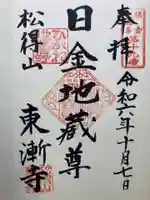 奉拝
令和六年十月七日
日金地蔵尊
松得山
東漸寺